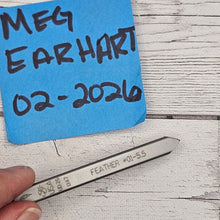 MEG
EARHART
02-2026
FEATHER #01-5.5